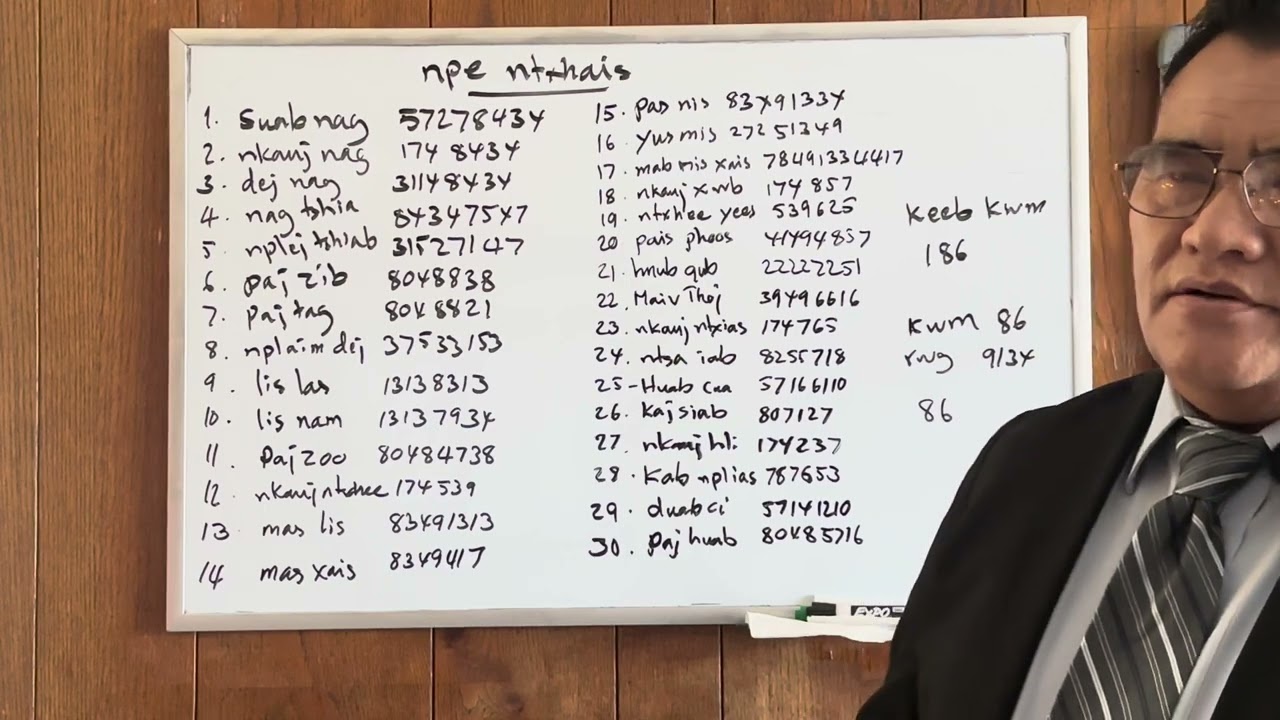 npe ntxhais
1. Suab nag 57278434
2. nkauj nag 1748434
3. dej nag 31148434
4. nag tshia 84347547
5. nplej tshiab 31527147
6. paj zib 8048838
7. paj tag 8048821
8. nplaim dej 37533153
9. lis las 13138313
10. lis nam 13137934
11. paj zoo 80484738
12. nkauj ntxhee 174539
13. mas lis 83491313
14 mas xais 8349417
15. pas nis 83491334
16. yus mis 27251349
17. mab mis xais 78491334417
18. nkauj xwb 174857
19. ntxhee yees 539625
20 pais phoos 41494857
21. hnub qub 22227251
22. Maiv Thoj 39496616
23. nkauj ntxias 174765
24. ntsa iab 8255718
25- Huab cua 57166110
26. Kaj siab 807127
27. nkauj hli 174237
28. Kab nplias 787653
29. duab ci 57141210
30. paj huab 80485716
Keeb Kwm
186
Kwm 86
rwg 9134
86
EXPO